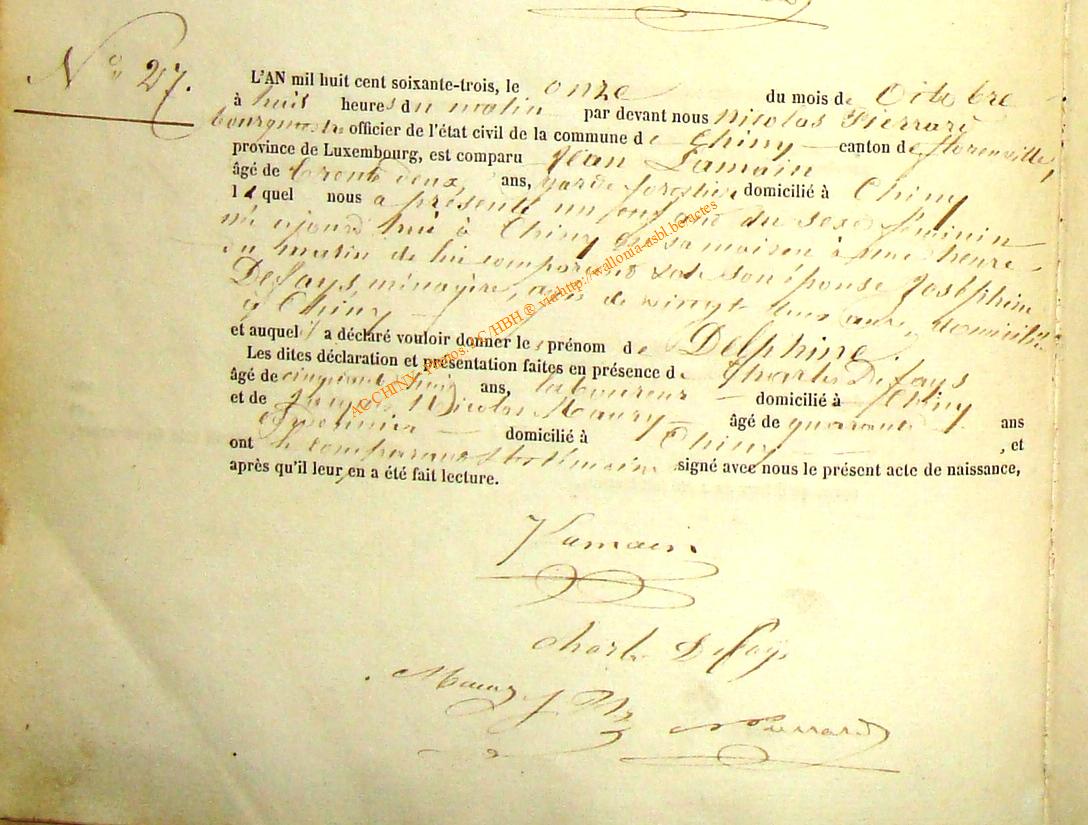 N° 27.
L'AN mil huit cent soixante-trois, le onze du mois de Octobre
à huit heures du matin par devant nous nicolas Pierrard
bourgmestre officier de l'état civil de la commune de Chiny canton de florenville,
province de Luxembourg, est comparu Jean Lamain
âgé de trente deux, ans, garde forestier domicilié à Chiny
lequel nous a présenté un enfant du sexe féminin
né ajourd'hui à Chiny en sa maison à une heure
du matin de lui comparant & de son épouse Joséphine
Defays, ménagère, agée de vingt deux ans, domiciliée
à Chiny
et auquel il a déclaré vouloir donner le prénom de Delphine.
Les dites déclaration et présentation faites en présence de Charles Defays
âgé de cinquante huit ans, laboureur domicilié à Chiny
et de Jacques Nicolas Maury âgé de quarante ans
domicilié à Chiny , et
ont le comparant & les témoins signé avec nous le présent acte de naissance,
après qu'il leur en a été fait lecture.
J Lamain
Charles Defays
Maury J N
N Pierrard
AC CHINY - Photos AC/HBH ® via http://wallonia-asbl.be/actes